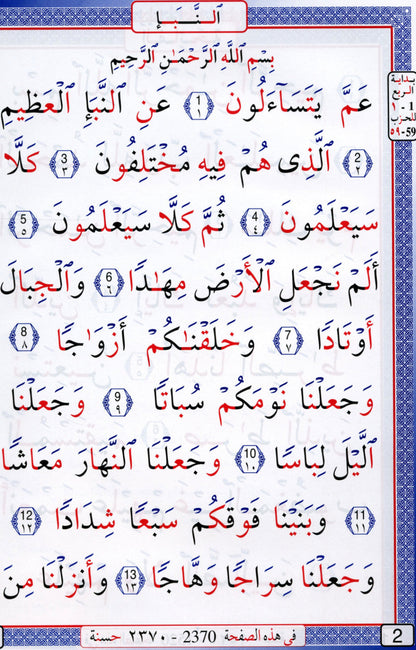 النَّبَإِ
بِسْمِ ٱللَّهِ ٱلرَّحْمَـٰنِ ٱلرَّحِيمِ
بداية
الربع
1 - ١
للحزب
59-٥٩
عَمَّ يَتَسَآءَلُونَ 1 ١ عَنِ ٱلنَّبَإِ ٱلْعَظِيمِ
2 ٢ ٱلَّذِى هُمْ فِيهِ مُخْتَلِفُونَ 3 ٣ كَلَّا
سَيَعْلَمُونَ 4 ٤ ثُمَّ كَلَّا سَيَعْلَمُونَ 5 ٥
أَلَمْ نَجْعَلِ ٱلْأَرْضَ مِهَـٰدًا 6 ٦ وَٱلْجِبَالَ
أَوْتَادًا 7 ٧ وَخَلَقْنَـٰكُمْ أَزْوَٰجًا 8 ٨
وَجَعَلْنَا نَوْمَكُمْ سُبَاتًا 9 ٩ وَجَعَلْنَا
ٱلَّيْلَ لِبَاسًا 10 ١٠ وَجَعَلْنَا ٱلنَّهَارَ مَعَاشًا
11 ١١ وَبَنَيْنَا فَوْقَكُمْ سَبْعًا شِدَادًا 12 ١٢
وَجَعَلْنَا سِرَاجًا وَهَّاجًا 13 ١٣ وَأَنزَلْنَا مِنَ
في هذه الصفحة 2370 - ٢٣٧٠ حسنة
2